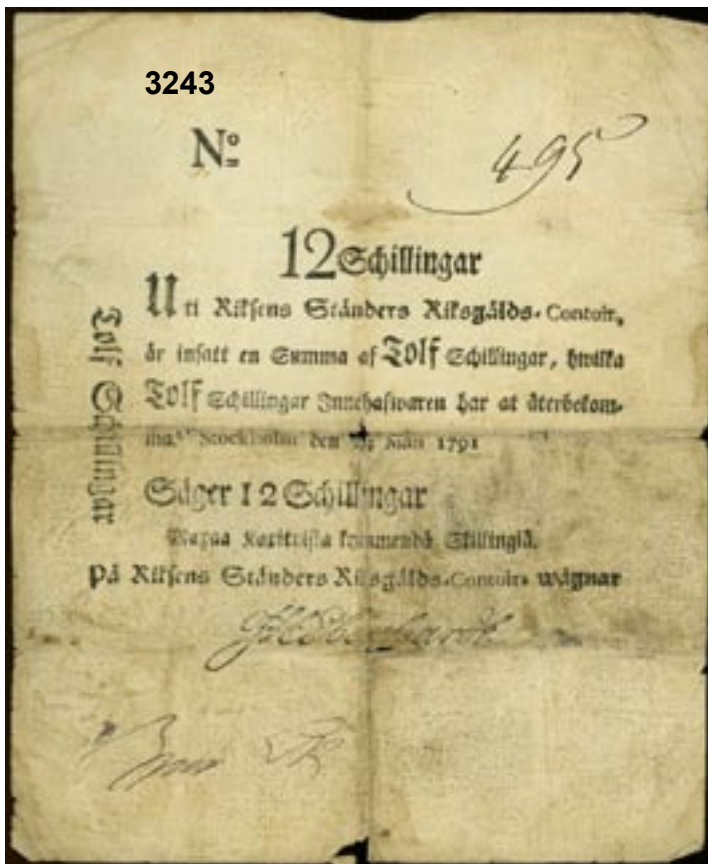 3243
No 495
12 Schillingar
Uti Riksens Ständers Riksgälds-Contoir,
är insatt en Summa af Tolf Schillingar, hwilka
Tolf Schillingar Innehafwaren har at återbekom-
ma. Stockholm den 1791
Säger 12 Schillingar
Maxaa Skillingiä.
På Riksens Ständers Riksgälds-Contoirs wägnar
Tolf Schillingar